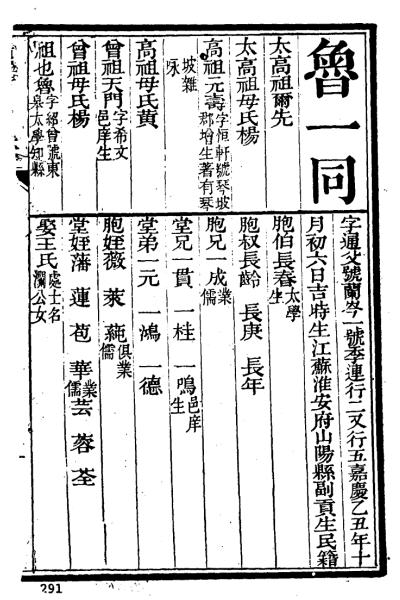 魯一同
字通父號蘭岑一號季連行二又行五嘉慶乙丑年十
月初六日吉時生江蘇淮安府山陽縣副貢生民籍
太高祖爾先
太高祖母氏楊
高祖元壽字恒軒號琴坡郡增生著有琴
坡雜咏
高祖母氏黃
曾祖天門字希文邑庠生
曾祖母氏楊
祖也魯字紹曾號東皋太學知縣
胞伯長春太學生
胞叔長齡 長庚 長年
胞兄一成業儒
堂兄一貫 一桂 一鳴邑庠生
堂弟一元 一鴻 一德
胞姪薇 萊 蒓俱業儒
堂姪藩 蓮 苞 華業儒 芸 蓉 荃
娶王氏處士名瀾公女
291